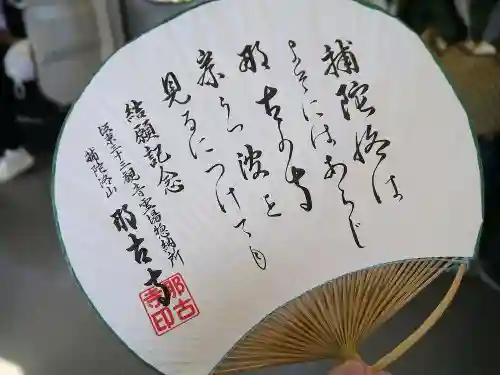 補陀洛は
よそにはあらじ
那古の寺
岸うつ波を
見るにつけても
結願記念
坂東三十三観音霊場惣納所
補陀洛山
那古寺
那古寺印